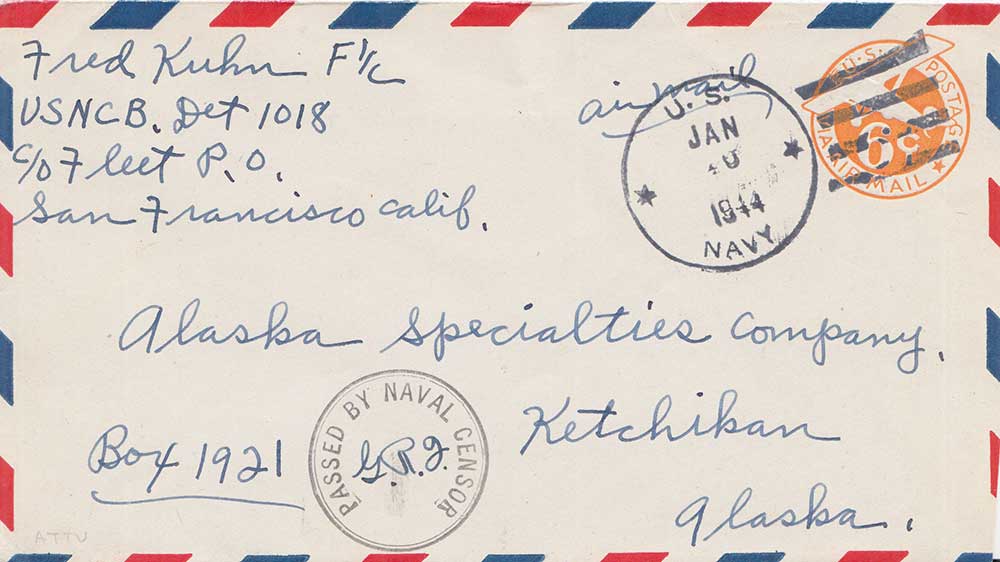 Fred Kuhn F1/c
USNCB. Det 1018
c/o Fleet P.O.
San Francisco Calif.
air mail
U.S.
JAN
1944
NAVY
U.S. POSTAGE
6c
VIA AIR MAIL
Alaska Specialties Company.
Ketchikan
Alaska.
Box 1921
PASSED BY NAVAL CENSOR
ATTU